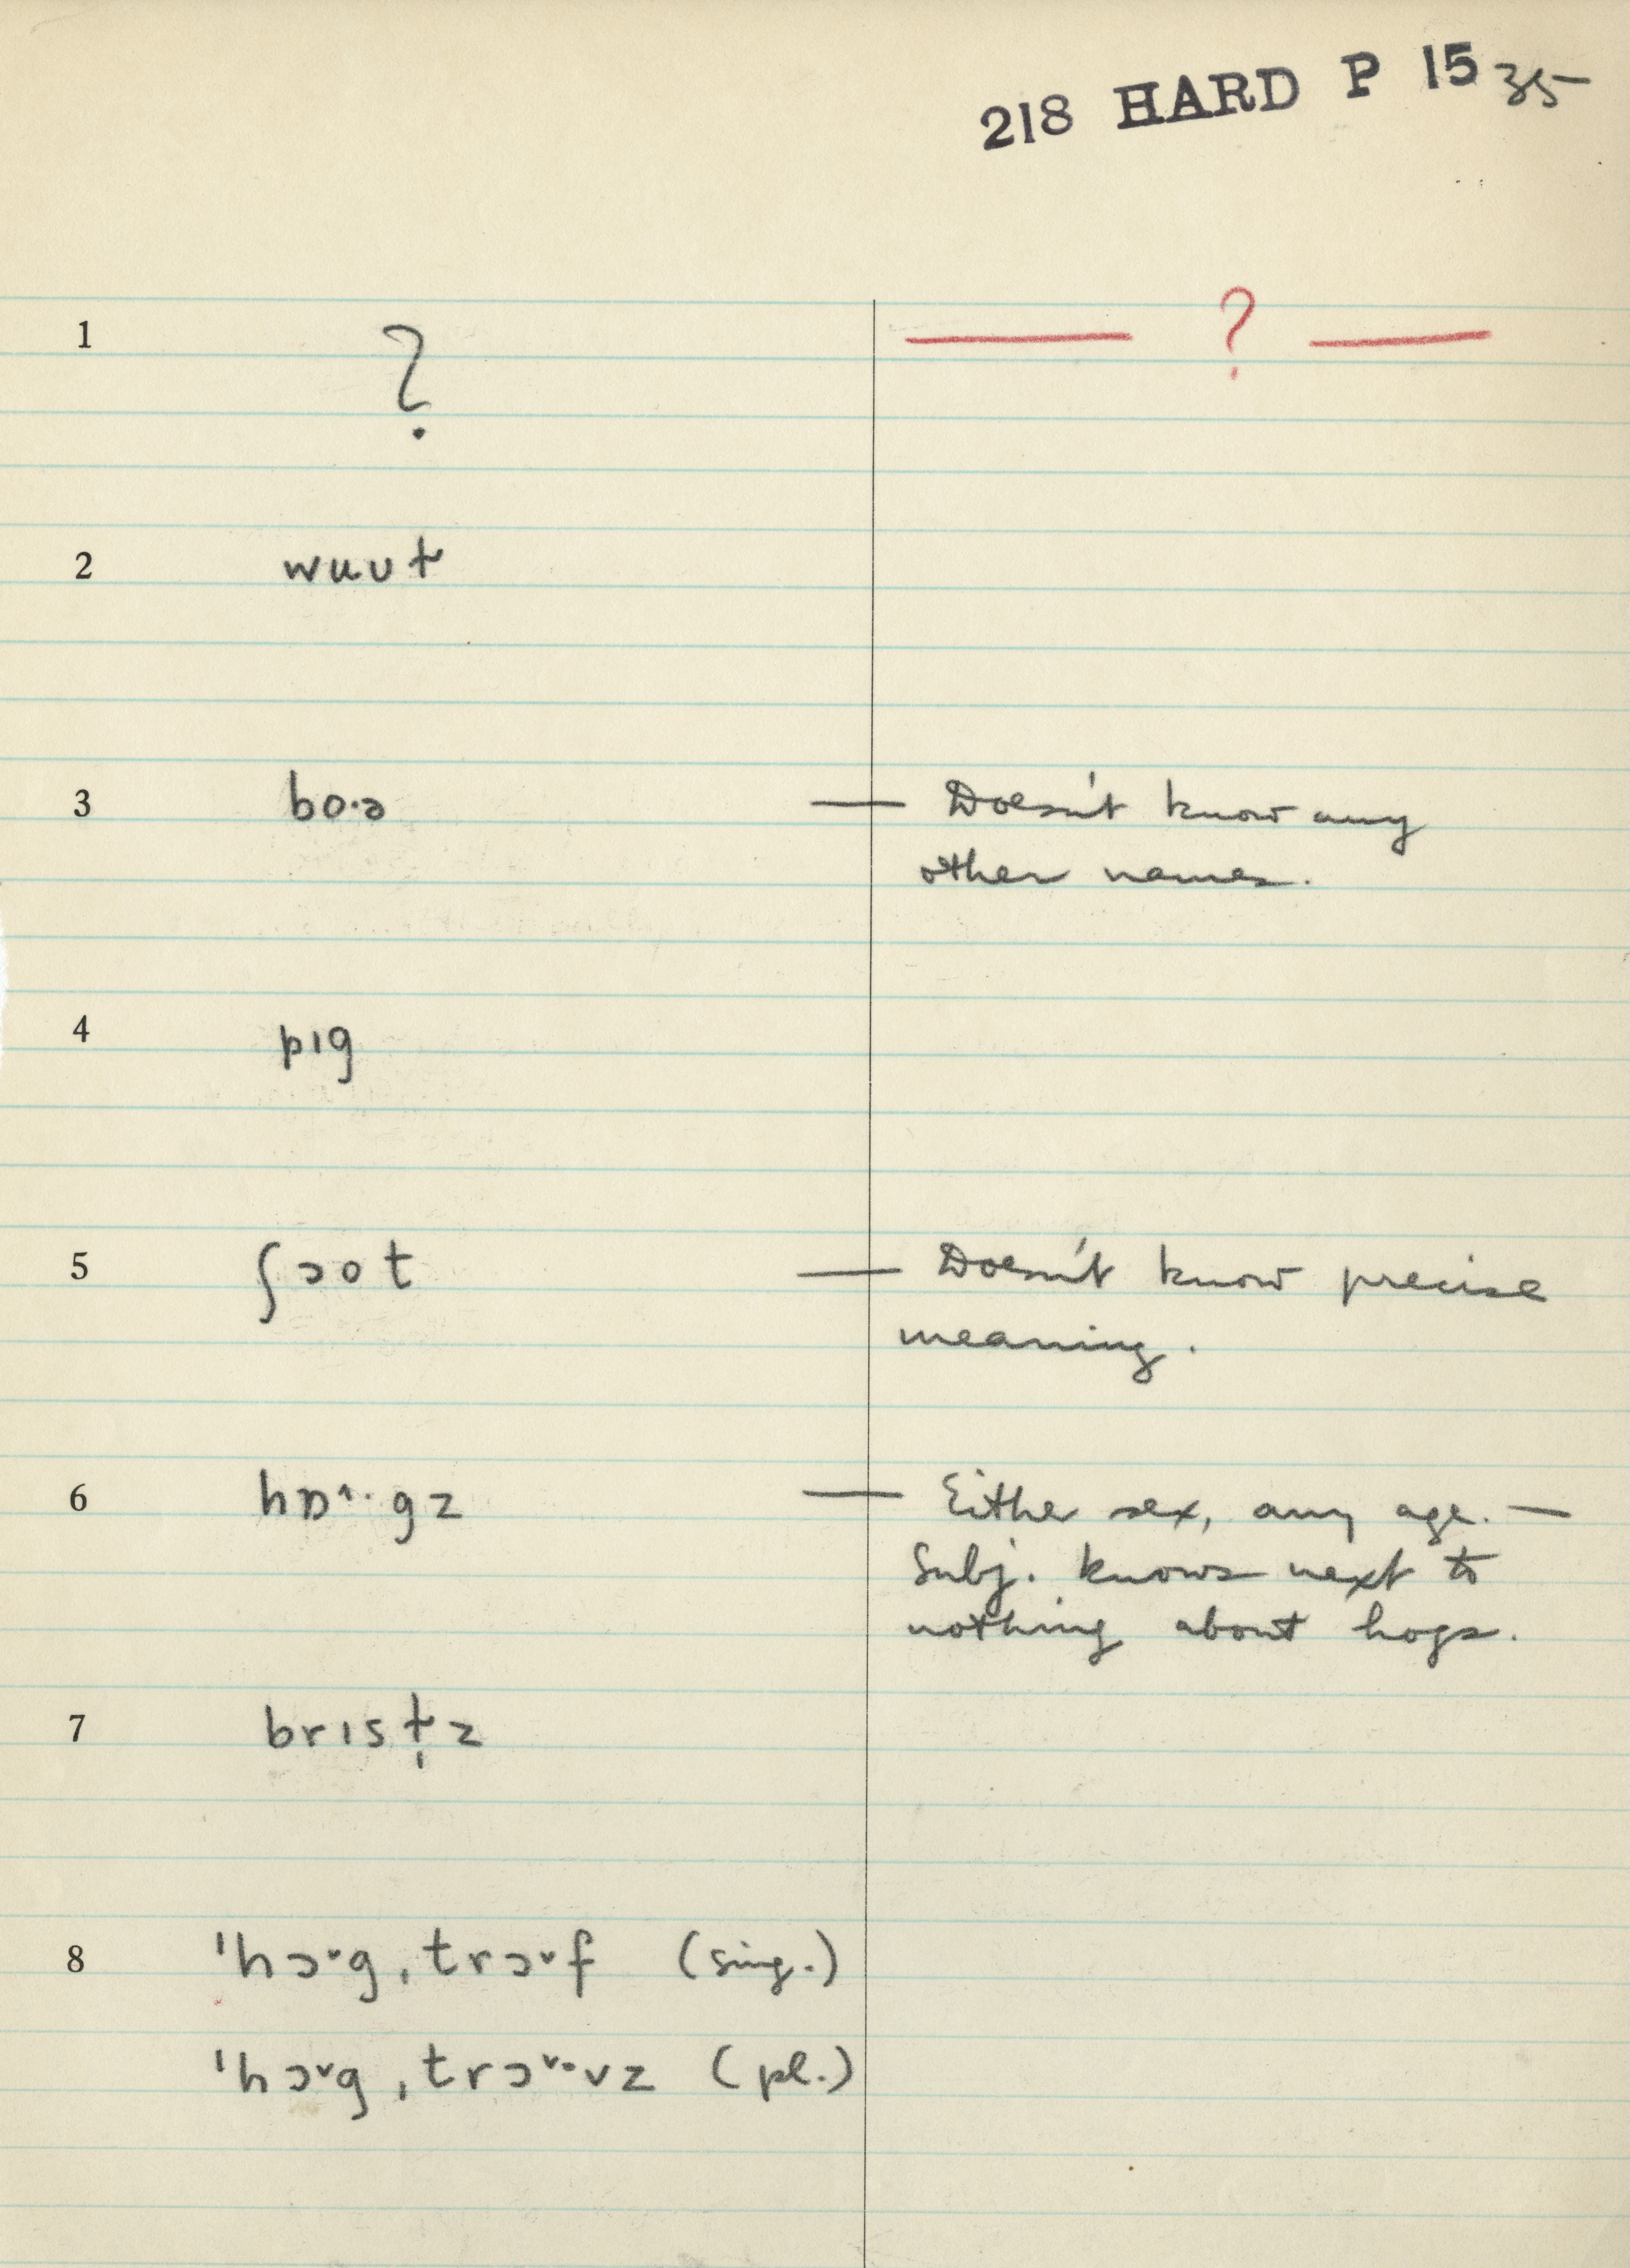 218 HARD P 15 35
1 ? — ? —
2 wuʊɫ
3 bo·ə — Doesn't know any
other names.
4 pɪg
5 ʃɔot — Doesn't know precise
meaning.
6 hɒ^·gz — Either sex, any age. —
Subj. knows next to
nothing about hogs.
7 brɪsɫ̩z
8 ˈhɔˇg ˌtrɔˇf (sing.)
ˈhɔˇg ˌtrɔˇ·vz (pl.)